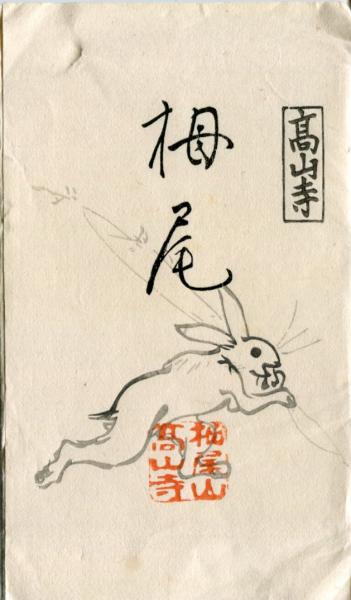 高山寺
栂尾
栂尾山
高山寺